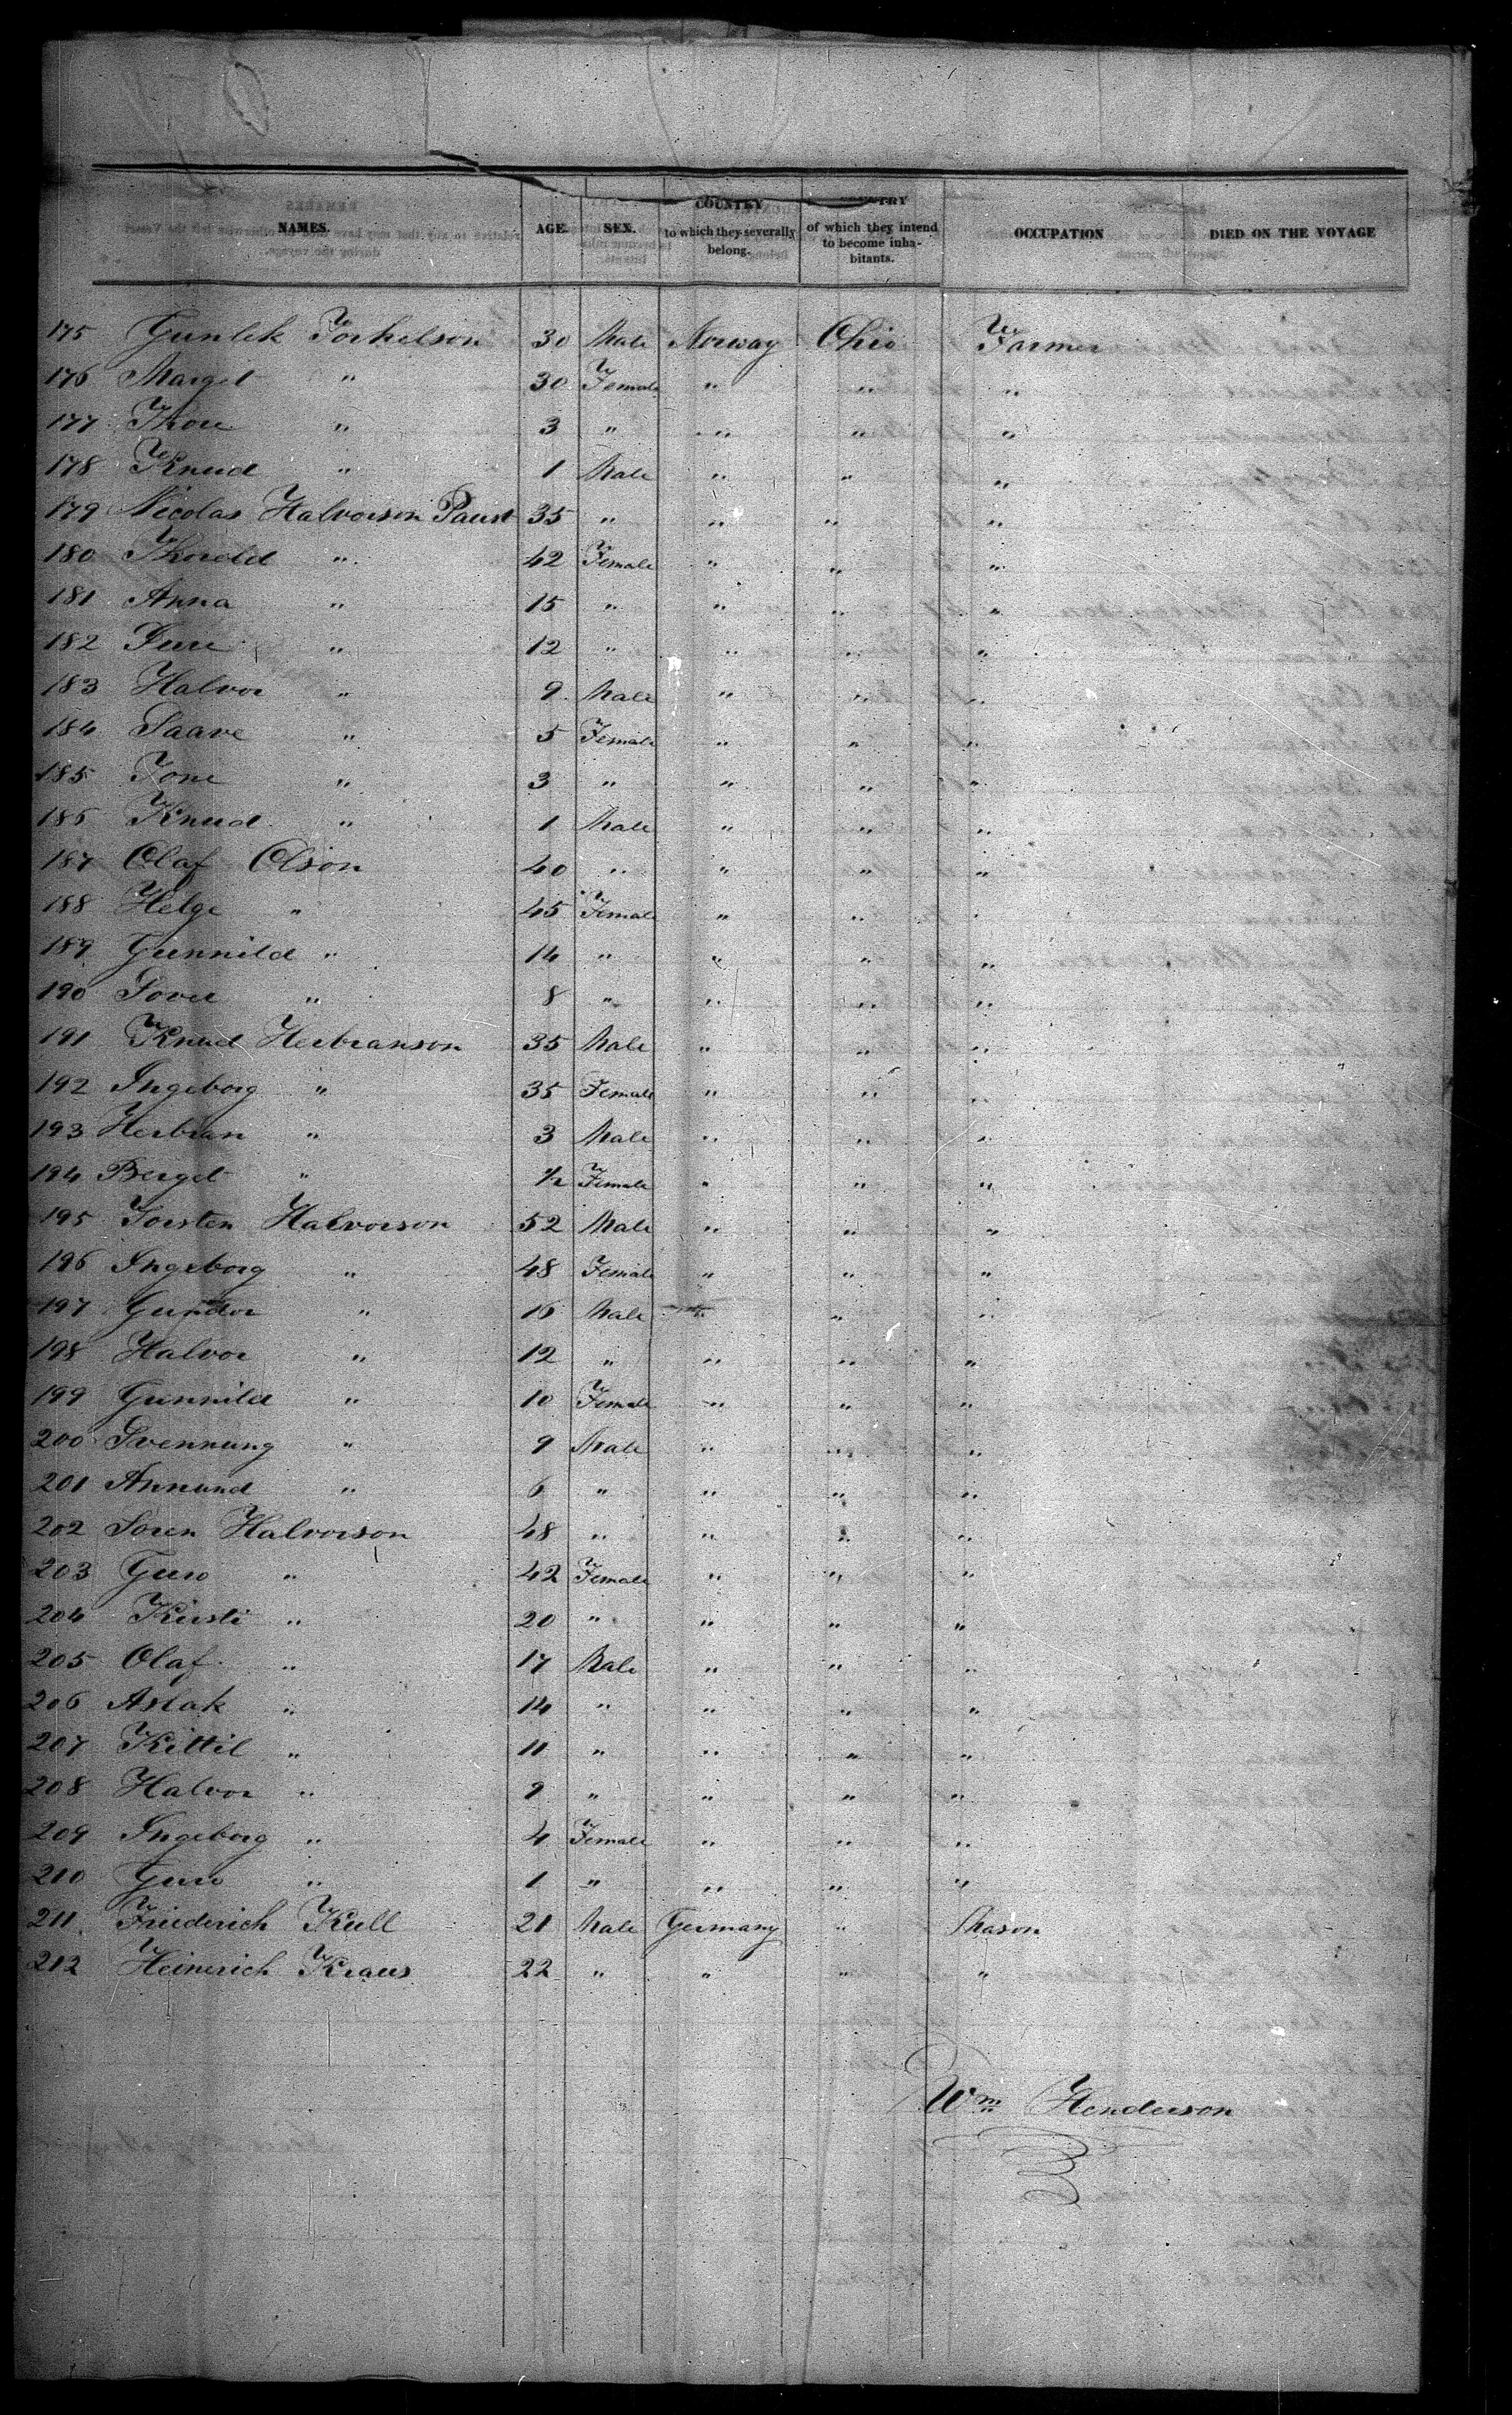 NAMES. AGE. SEX. COUNTRY to which they severally belong. COUNTRY of which they intend to become inhabitants. OCCUPATION DIED ON THE VOYAGE
175 Gunlek Torkelson 30 Male Norway Ohio Farmer
176 Marget " 30 Female " " "
177 Thore " 3 " " " "
178 Knud " 1 Male " " "
179 Nicolas Halvorson Paust 35 " " " "
180 Thorold " 42 Female " " "
181 Anna " 15 " " " "
182 " 12 " " " "
183 Halvor " 9 Male " " "
184 Saave " 5 Female " " "
185 Tone " 3 " " " "
186 Knud " 1 Male " " "
187 Olaf Olson 40 " " " "
188 Helge " 45 Female " "
189 Gunnild " 14 " " " "
190 " 8 " " " "
191 Knud Herbranson 35 Male " " "
192 Ingeborg " 35 Female " " "
193 Herbran " 3 Male " " "
194 Berget " 1/2 Female " " "
195 Torsten Halvorson 52 Male " " "
196 Ingeborg " 48 Female " " "
197 Gundor " 16 Male " " "
198 Halvor " 12 " " " "
199 Gunnild " 10 Female " " "
200 Svennung " 9 Male " " "
201 Annund " 6 " " " "
202 Soren Halvorson 48 " " " "
203 Guro " 42 Female " " "
204 Kirsti " 20 " " " "
205 Olaf " 17 Male " " "
206 Aslak " 14 " " " "
207 Kittil " 11 " " " "
208 Halvor " 9 " " " "
209 Ingeborg " 4 Female " " "
210 Guro " 1 " " " "
211 Friederich Kull 21 Male Germany " Mason
212 Heinerich Kraus 22 " " " "
Wm Henderson